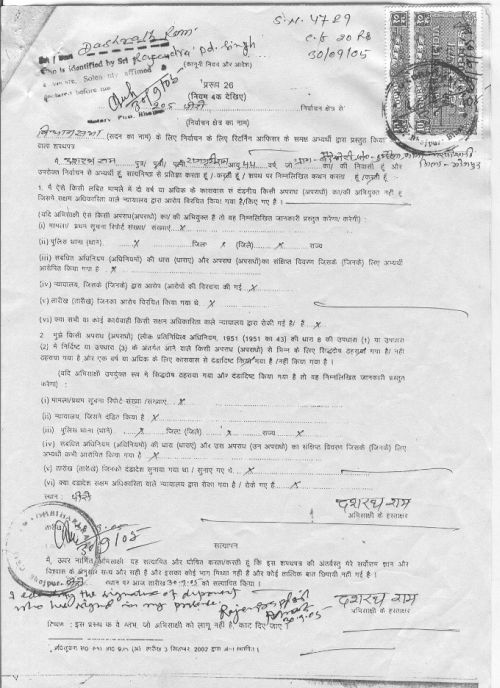 S.N. 4789
C.F 20 Rs
30/09/05
Sri / Smt Dashrath Ram
Who is identified by Sri Rajendra Pd. Singh
(कानूनी नियम और आदेश)
30/9/05
प्ररूप 26
(नियम 4क देखिए)
205 पीरो निर्वाचन क्षेत्र से
(निर्वाचन क्षेत्र का नाम)
विधानसभा (सदन का नाम) के लिए निर्वाचन के लिए रिटर्निंग आफिसर के समक्ष अभ्यर्थी द्वारा प्रस्तुत किया
वाला शपथपत्र
मैं दशरथ राम पुत्र/ पुत्री/ पत्नी आयु 44 वर्ष, जो ग्राम- का/ की निवासी हूं और
उपरोक्त निर्वाचन से अभ्यर्थी हूं, सत्यनिष्ठा से प्रतिज्ञा करता हूं / करती हूं / शपथ पर निम्नलिखित कथन करता हूं / करती हूं :-
1. मैं ऐसे किसी लंबित मामले में दो वर्ष या अधिक के कारावास से दंडनीय किसी अपराध (अपराधों) का/की अभियुक्त नहीं हूं
जिसमें सक्षम अधिकारिता वाले न्यायालय द्वारा आरोप विरचित किया/ गया है/किए गए हैं ।
(यदि अभिसाक्षी ऐसे किसी अपराध(अपराधों) का/ की अभियुक्त है तो वह निम्नलिखित जानकारी प्रस्तुत करेगा/ करेगी) :
(i) मामला/ प्रथम सूचना रिपोर्ट संख्या/ संख्याएं....X
(ii) पुलिस थाना (थाने) X जिला X (जिले) राज्य
(iii) संबंधित अधिनियम (अधिनियमों) की धारा (धाराएं) और अपराध (अपराधों)का संक्षिप्त विवरण जिसके (जिनके) लिए अभ्यर्थी
आरोपित किया गया है : X
(iv) न्यायालय, जिसके (जिनके) द्वारा आरोप (आरोपों की विरचना की गई...X
(v) तारीख (तारीखें) जिनका आरोप विरचित किया गया थे. X
(vi) क्या सभी या कोई कार्यवाही किसी सक्षम अधिकारिता वाले न्यायालय द्वारा रोकी गई है/ हैं...X
2. मुझे किसी अपराध (अपराधों) (लोक प्रतिनिधित्व अधिनियम, 1951 (1951 का 43) की धारा 8 की उपधारा (1) या उपधारा
(2) में निर्दिष्ट या उपधारा (3) के अंतर्गत आने वाले किसी अपराध (अपराधों) से भिन्न के लिए सिद्धदोष ठहराया गया है/ नहीं
ठहराया गया है और एक वर्ष या अधिक के लिए कारावास से दंडादिष्ट किया गया है /नहीं किया गया है ।
(यदि अभिसाक्षी उपर्युक्त रूप में सिद्धदोष ठहराया गया और दंडादिष्ट किया गया है तो वह निम्नलिखित जानकारी प्रस्तुत
करेगा) :
(i) मामला/प्रथम सूचना रिपोर्ट-संख्या /संख्याएं.....X
(ii) न्यायालय, जिसने दंडित किया है X
(iii) पुलिस थाना (थाने) X जिला (जिले) X राज्य X
(iv) संबंधित अधिनियम (अधिनियमों) की धारा (धाराएं) और उस अपराध (उन अपराधों) का संक्षिप्त विवरण जिसके (जिनके) लिए
अभ्यर्थी कभी आरोपित किया गया है X
(v) तारीख (तारीखें) जिनको दंडादेश सुनाया गया था / सुनाए गए थे. X
(vi) क्या दंडादेश सक्षम अधिकारिता वाले न्यायालय द्वारा रोका गया है / रोके गए हैं....X
स्थान : पीरो
दशरथ राम
अभिसाक्षी के हस्ताक्षर
तारीख
30/9/05
सत्यापन
मैं, ऊपर नामित अभिसाक्षी यह सत्यापित और घोषित करता/करती हूं कि इस शपथपत्र की अंतर्वस्तु मेरे सर्वोत्तम ज्ञान और
विश्वास के अनुसार सत्य और सही है और इसका कोई भाग मिथ्या नहीं है और कोई तात्विक बात छिपायी नहीं गई है ।
स्थान पर आज तारीख 30.9.05 को सत्यापित किया ।
I the signature of deponent
who has signed in my presence.
30.9.05
दशरथ राम
अभिसाक्षी के हस्ताक्षर
टिप्पण : इस प्रारूप के वे स्तंभ, जो अभिसाक्षी को लागू नहीं है, काट दिए जाएं ।
3 सितम्बर, 2002 द्वारा अन्तःस्थापित ।